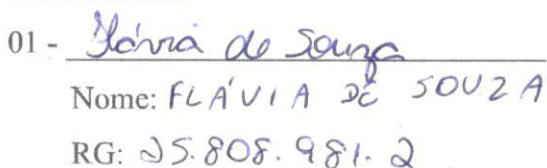 01 - Flávia de Souza
Nome: FLÁVIA DE SOUZA
RG: 25.808.981.2